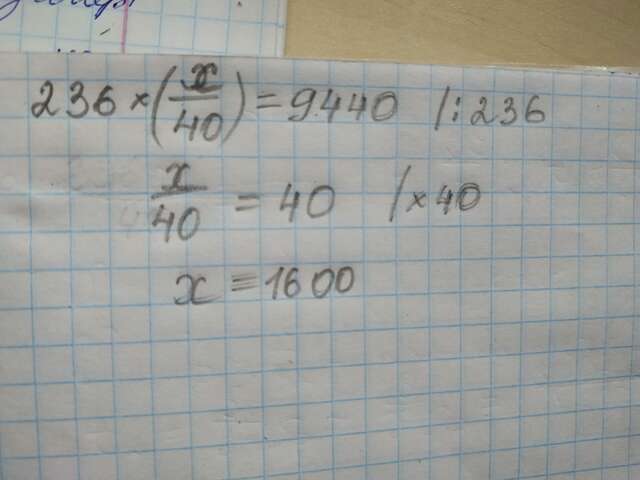 236 × (x/40) = 9440 /:236
x/40 = 40 /×40
x = 1600